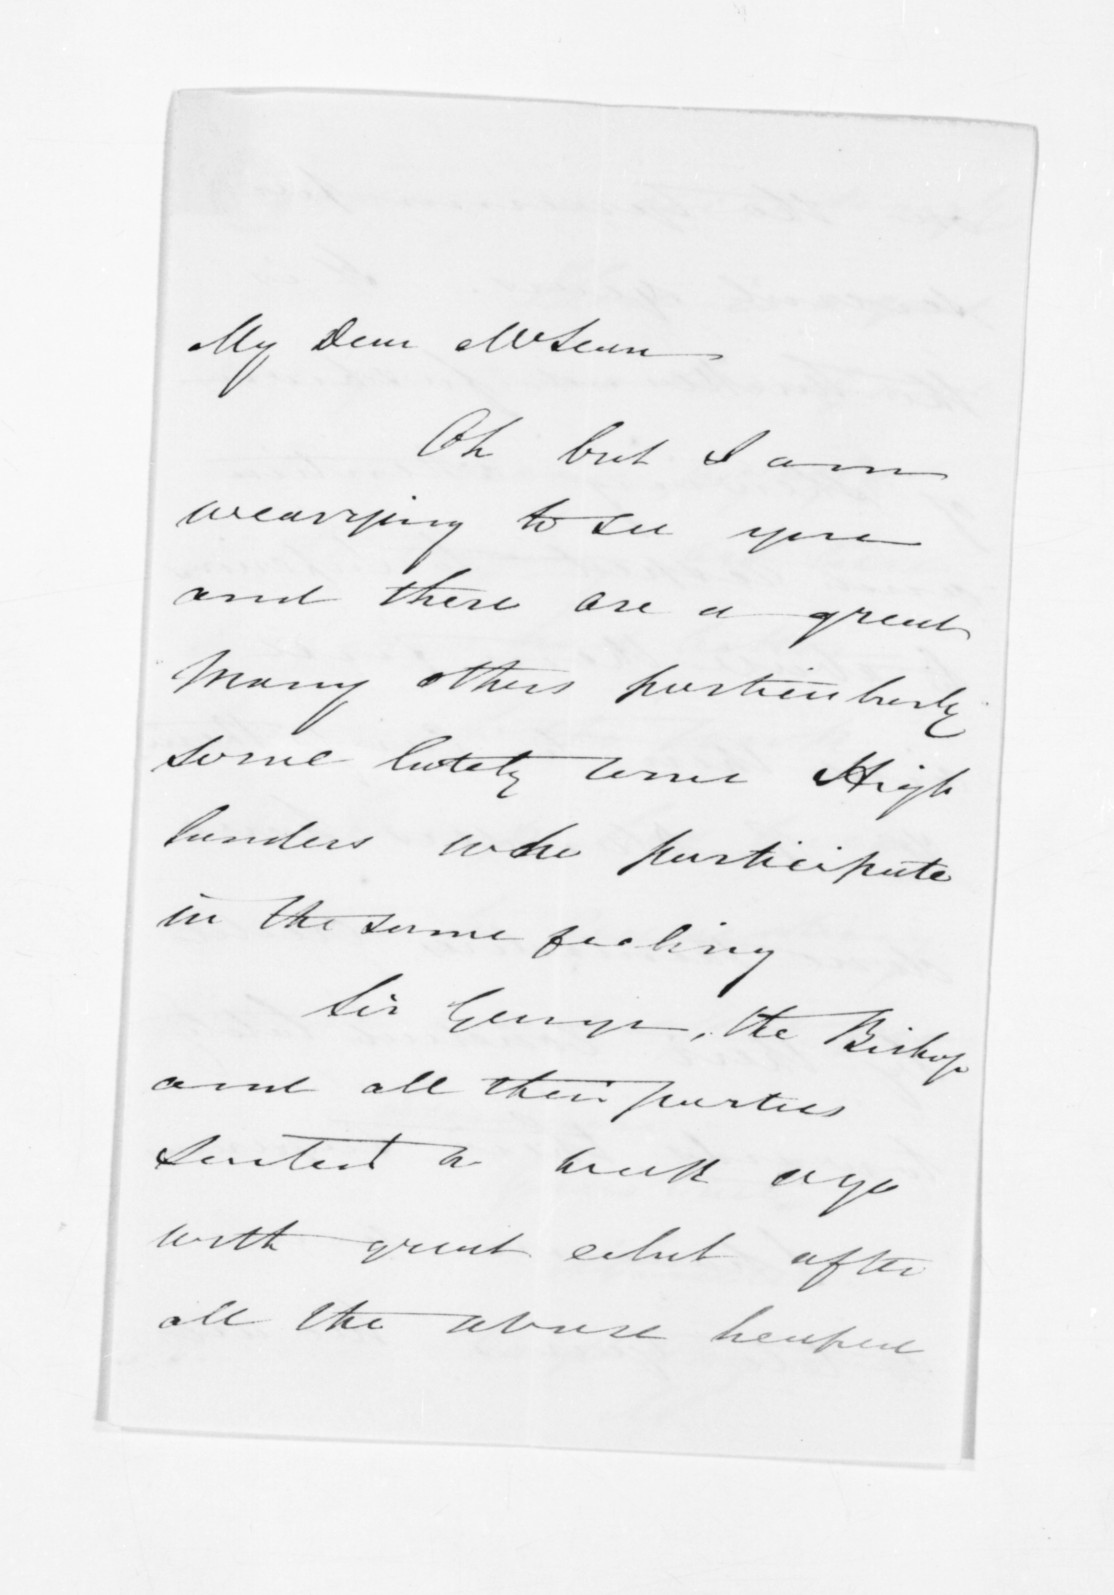 My Dear McLean
Oh but I am
wearying to see you
and there are a great
many others particularly
some lately come High
landers who participate
in the same feeling
Sir George, the Bishop
and all their parties
started a week ago
with great eclat after
all the abuse heaped